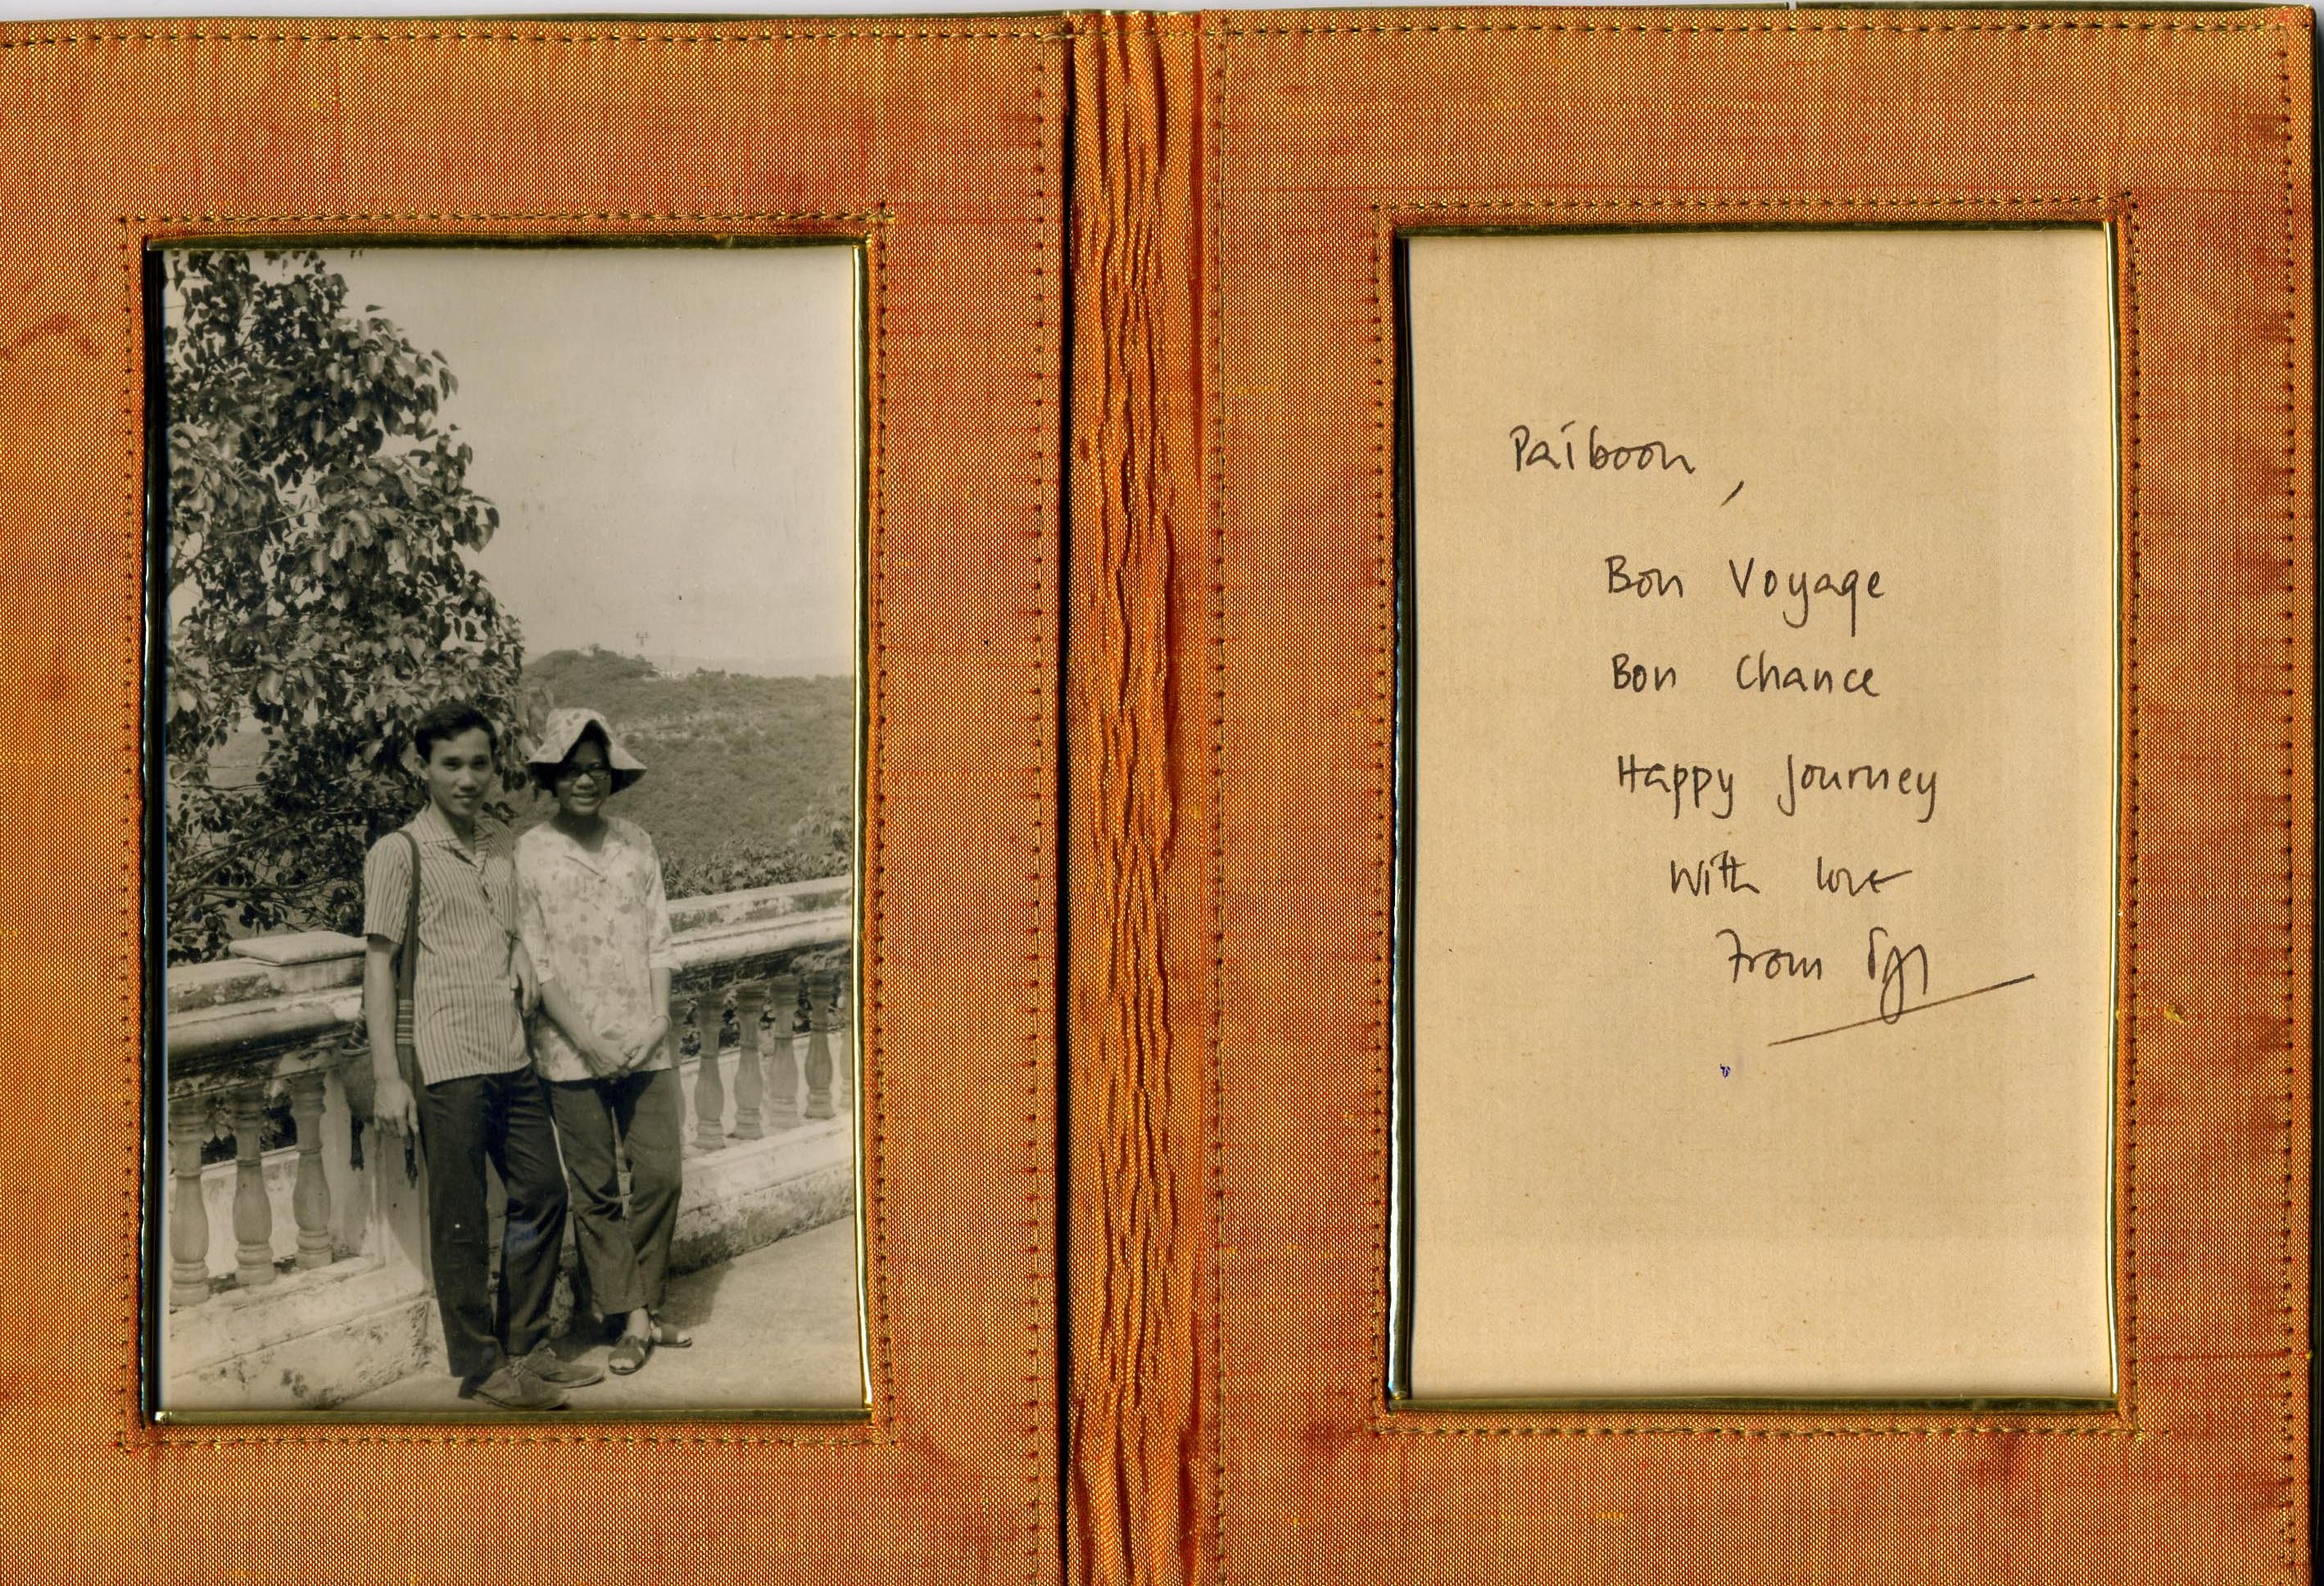 Paiboon,
Bon Voyage
Bon Chance
Happy Journey
With love
From